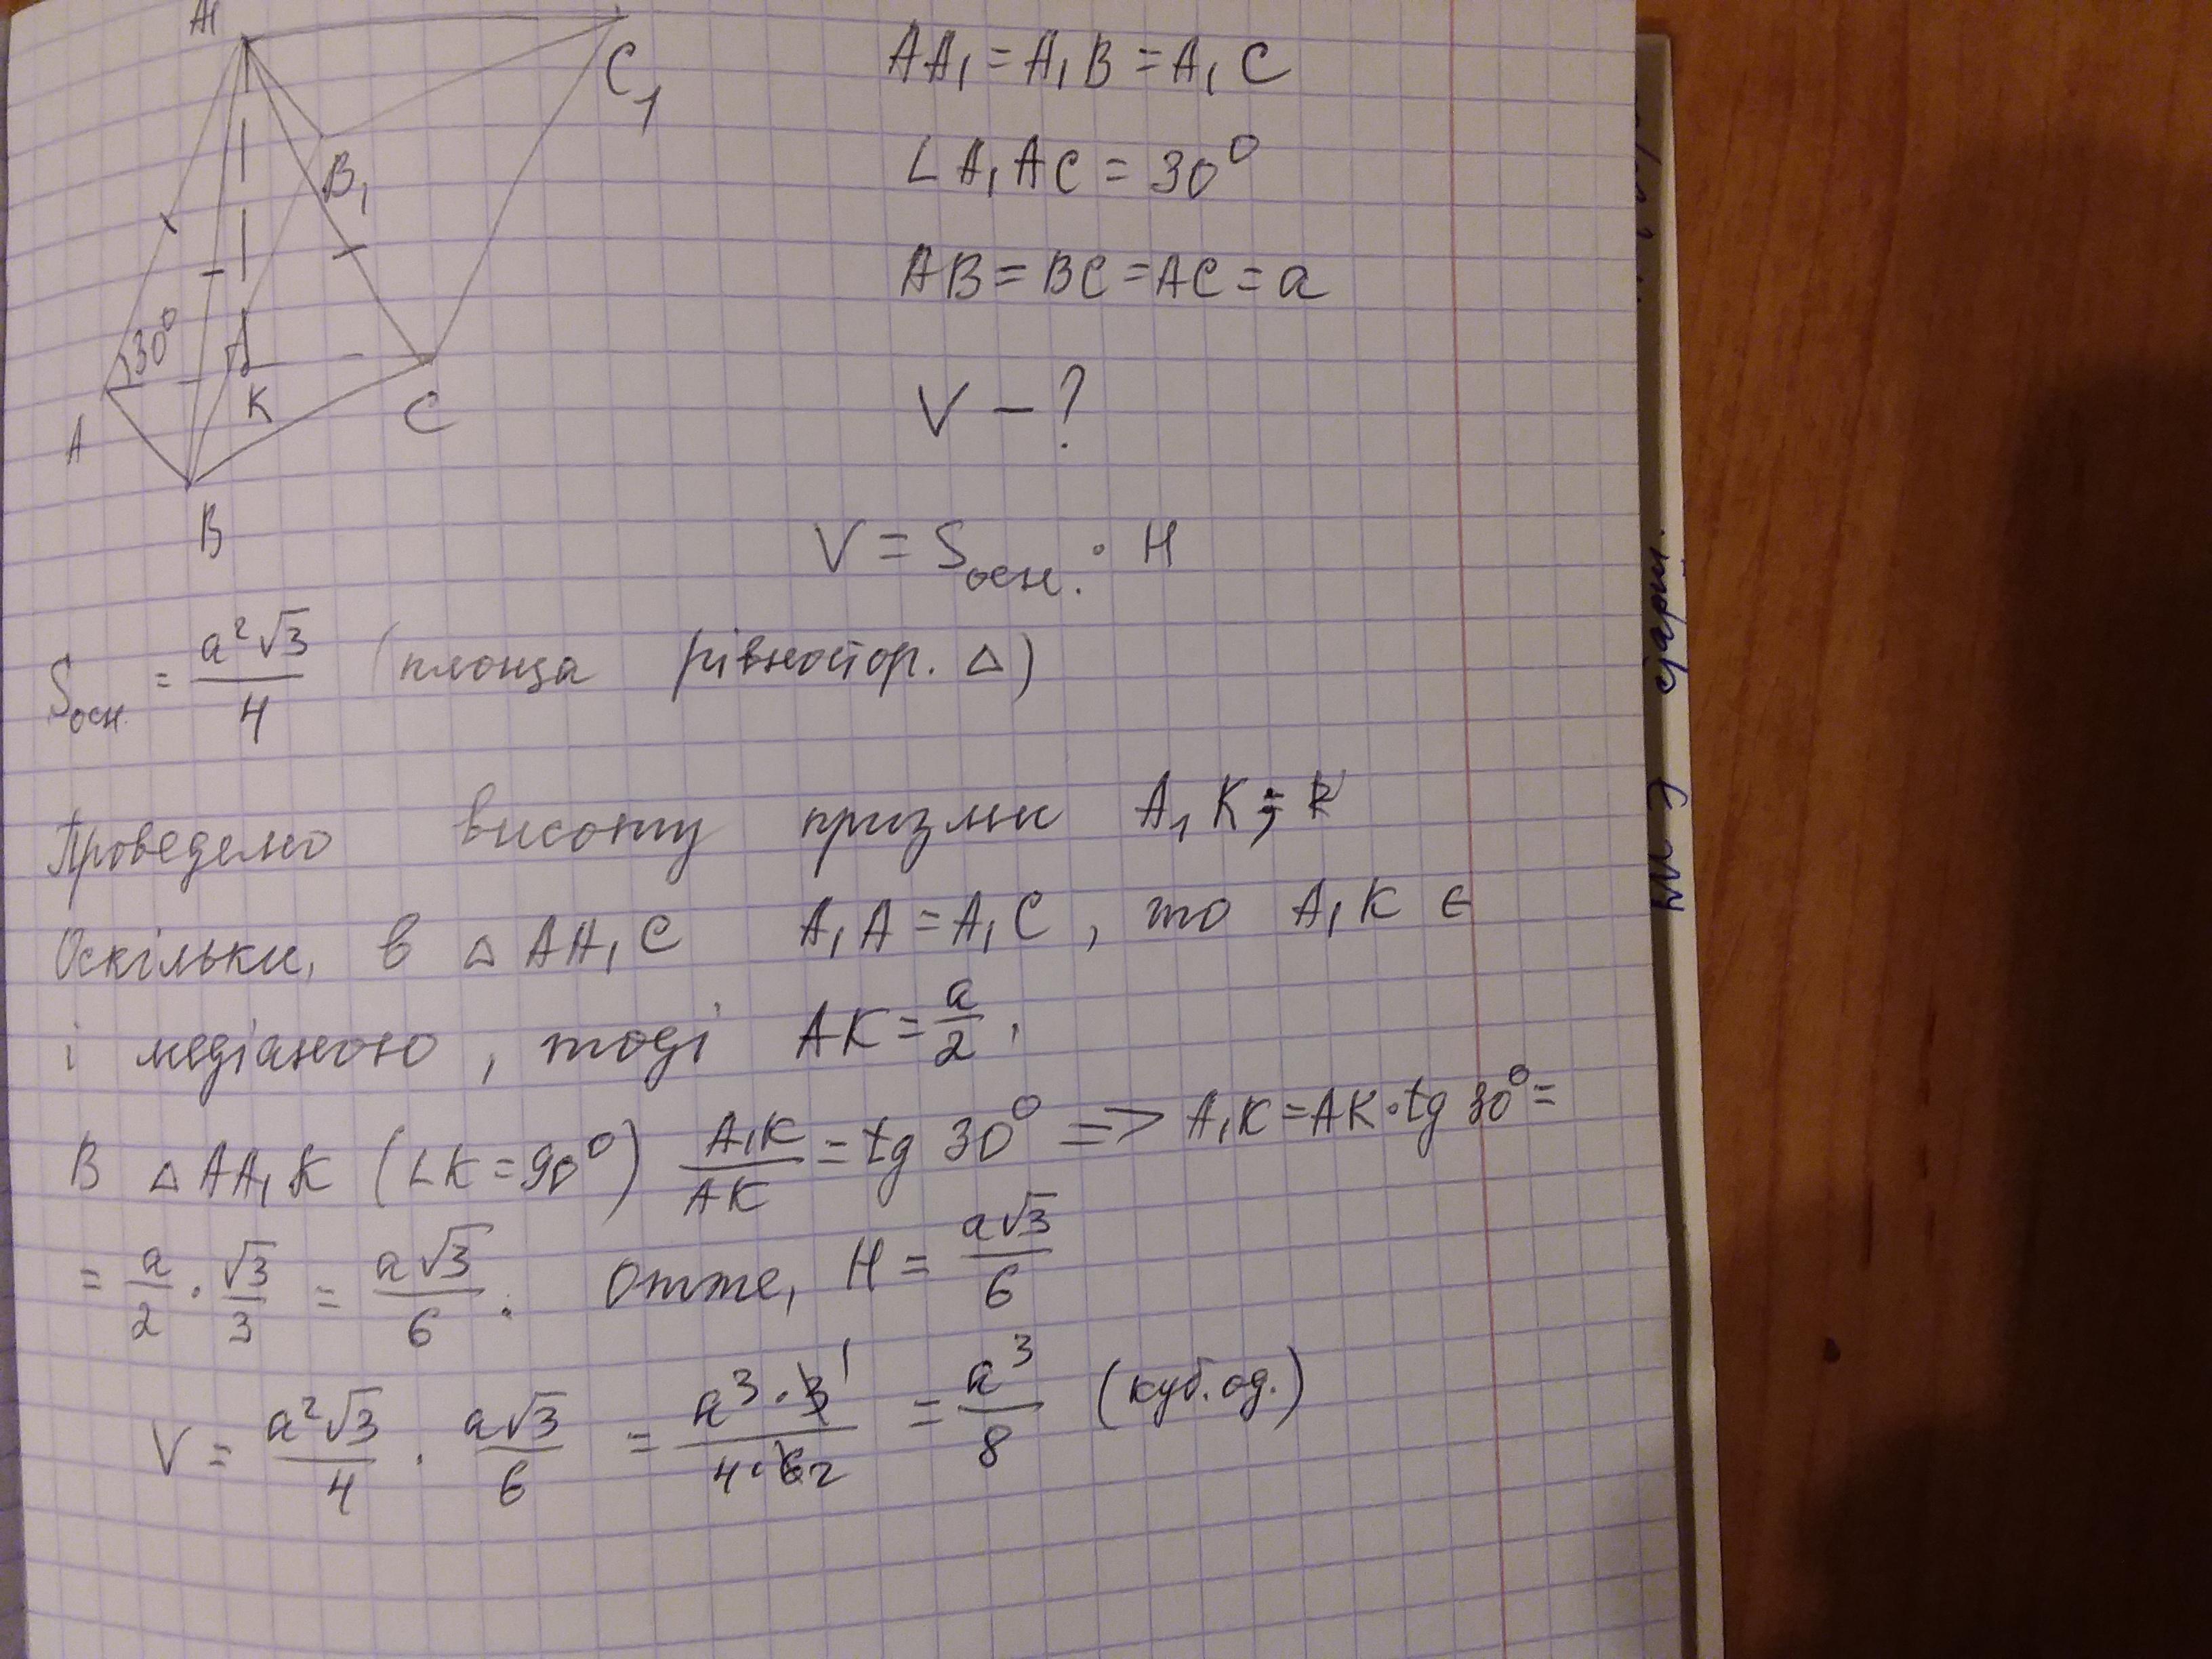 A₁
C₁
B₁
30°
A
K
C
B
AA₁ = A₁B = A₁C
∠A₁AC = 30°
AB = BC = AC = a
V – ?
V = Sосн. · H
Sосн. = a²√3/4 (площа рівностор. △)
Проведемо висоту призми A₁K;
Оскільки, в △AA₁C A₁A = A₁C, то A₁K є
і медіаною, тоді AK = a/2,
В △AA₁K (∠K = 90°) A₁K/AK = tg 30° => A₁K = AK · tg 30° =
= a/2 · √3/3 = a√3/6. Отже, H = a√3/6
V = a²√3/4 · a√3/6 = a³·3 1/4·6 2 = a³/8 (куб. од.)